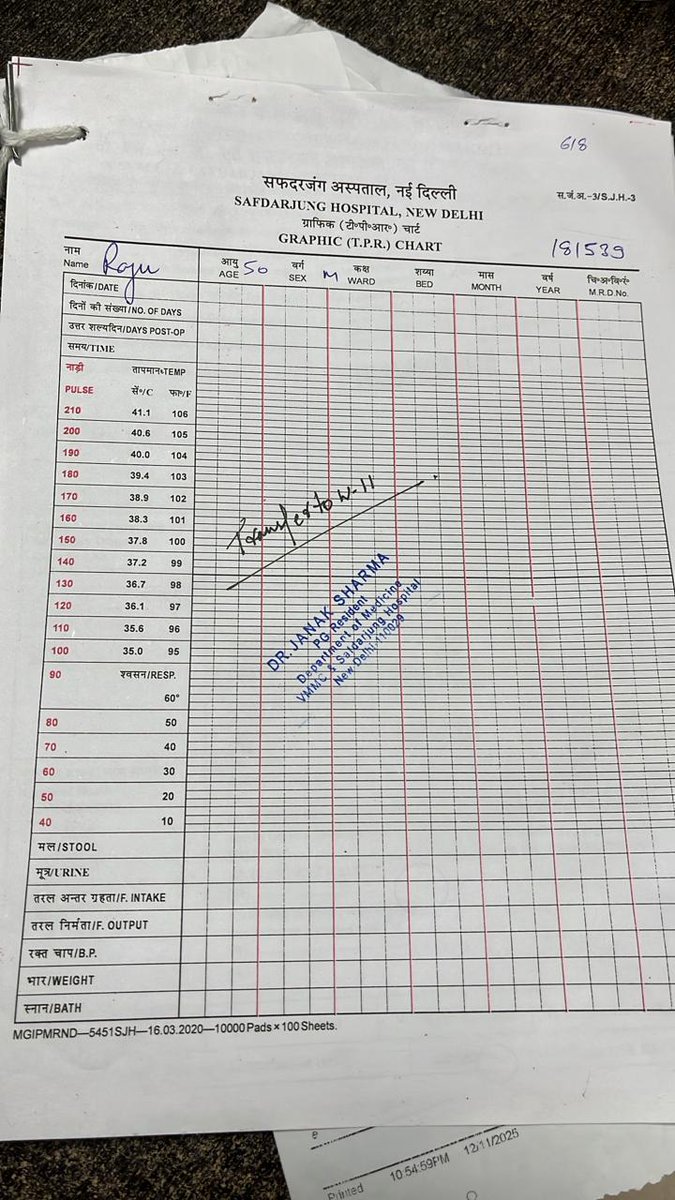 618
सफदरजंग अस्पताल, नई दिल्ली
स.जं.अ.-3/S.J.H.-3
SAFDARJUNG HOSPITAL, NEW DELHI
ग्राफिक (टी०पी०आर०) चार्ट
GRAPHIC (T.P.R.) CHART
181539
नाम आयु वर्ग कक्ष शय्या मास वर्ष चि०अ०वि०रं०
Name Raju AGE 50 SEX M WARD BED MONTH YEAR M.R.D.No.
दिनांक/DATE
दिनों की संख्या/NO. OF DAYS
उत्तर शल्यदिन/DAYS POST-OP
समय/TIME
नाड़ी तापमान/TEMP
PULSE सें०/C फा०/F
210 41.1 106
200 40.6 105
190 40.0 104
180 39.4 103
170 38.9 102
160 38.3 101
150 37.8 100
140 37.2 99
130 36.7 98
120 36.1 97
110 35.6 96
100 35.0 95
Transfer to W-11
DR.JANAK SHARMA
PG Resident
Department of Medicine
VMMC & Safdarjung Hospital
New Delhi-110029
90 श्वसन/RESP.
60°
80 50
70 40
60 30
50 20
40 10
मल/STOOL
मूत्र/URINE
तरल अन्तर ग्रहता/F. INTAKE
तरल निर्मता/F. OUTPUT
रक्त चाप/B.P.
भार/WEIGHT
स्नान/BATH
MGIPMRND—5451SJH—16.03.2020—10000 Pads × 100 Sheets.
e
Printed 10:54:59PM 12/11/2025